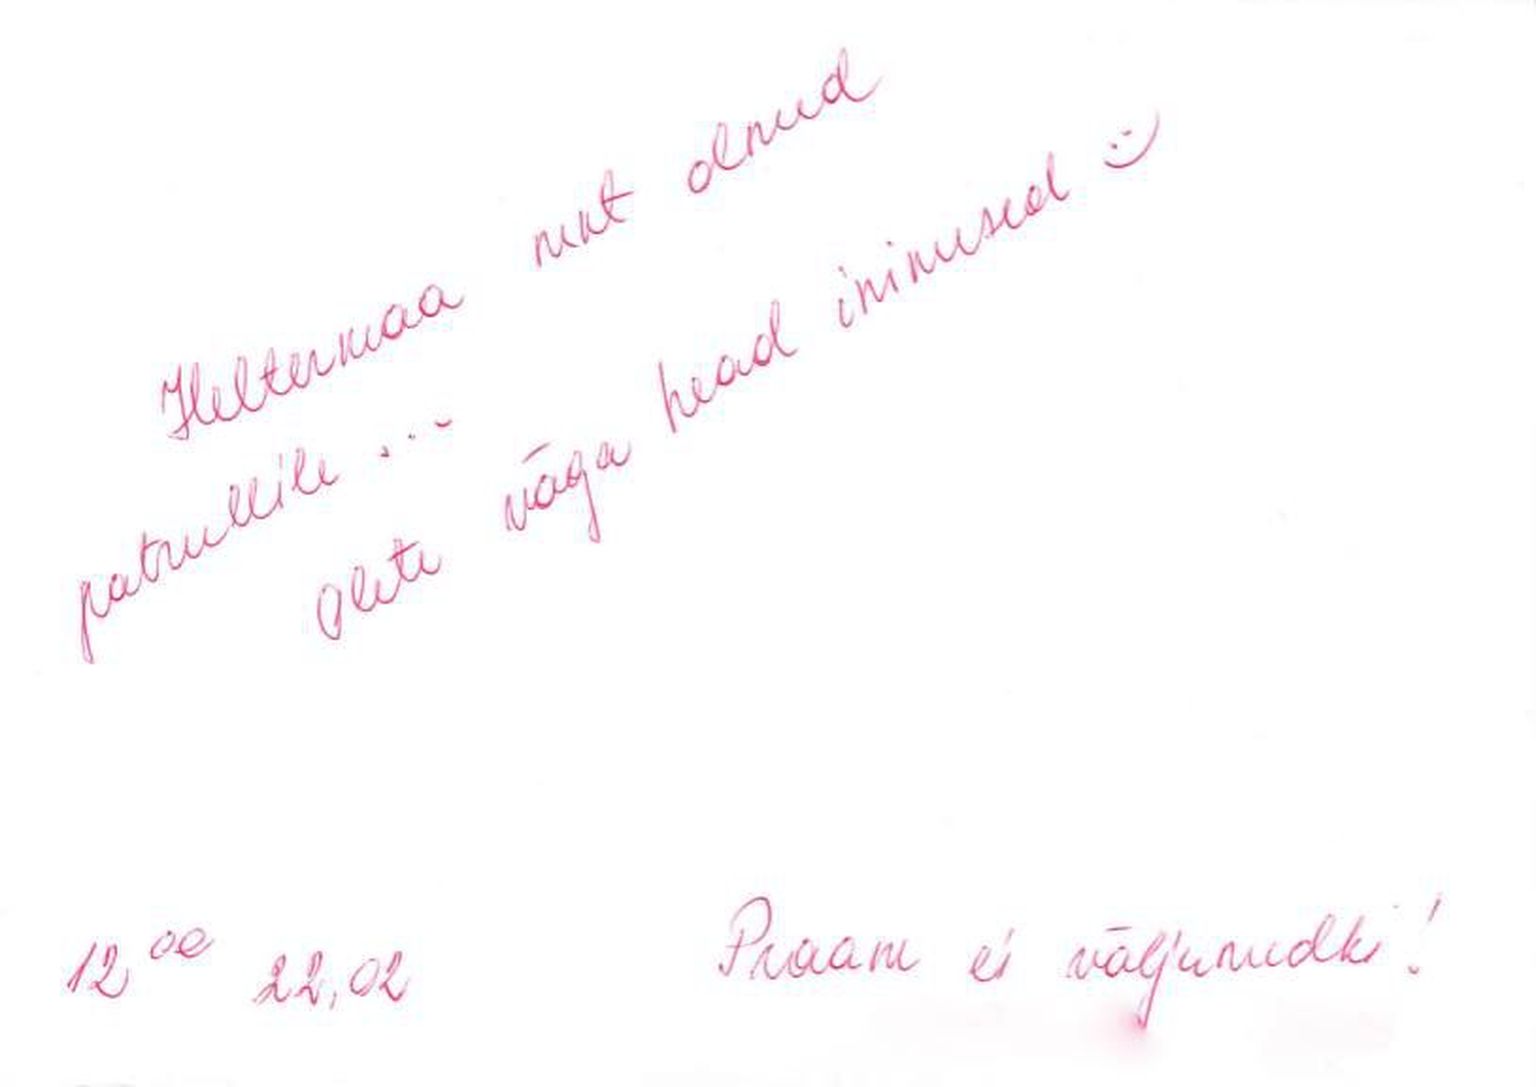 Heltermaa mnt olnud
patrullile ...
Olete väga head inimesed :)
12 00 22.02
Praam ei väljunudki!